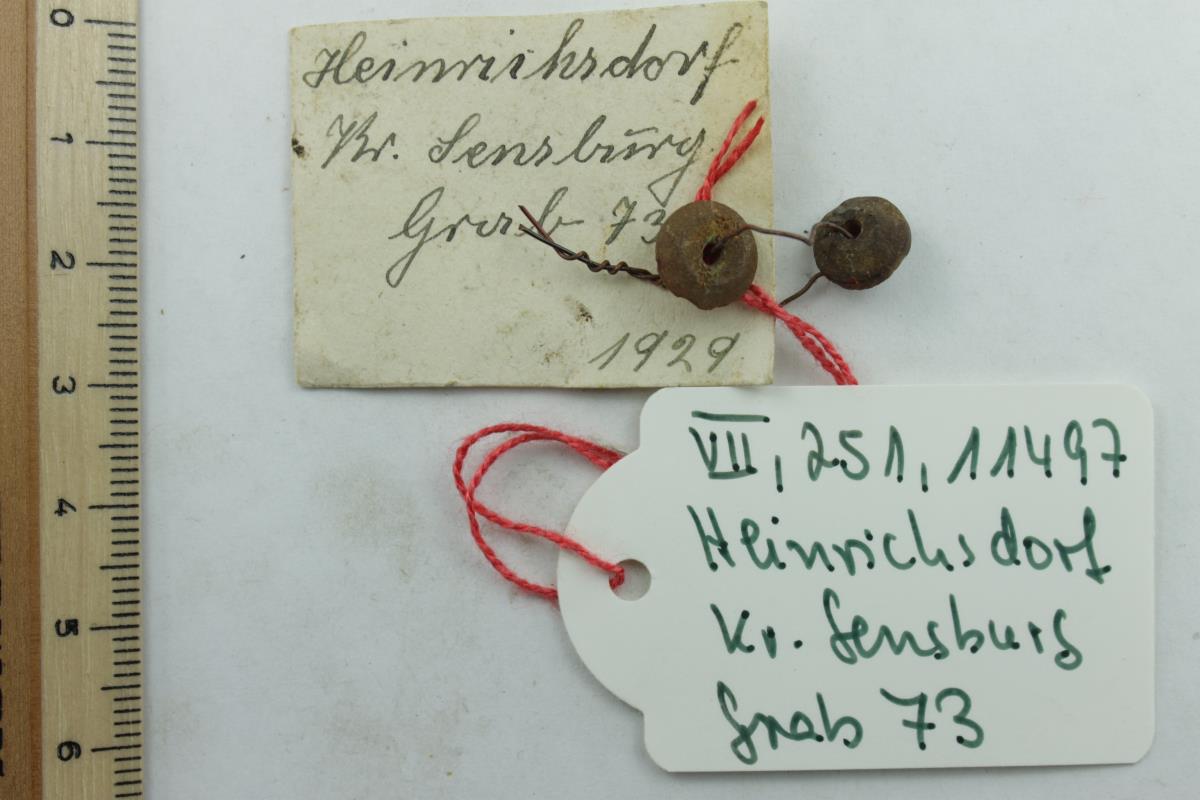 Heinrichsdorf
Kr. Sensburg
Grab 73
1929
VII, 251, 11497
Heinrichsdorf
Kr. Sensburg
Grab 73
0
1
2
3
4
5
6